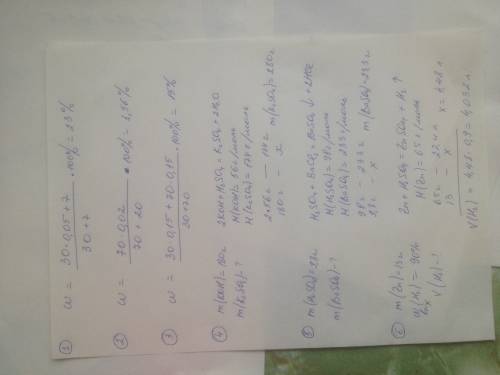 ① ω = 30 · 0,05 + 7 / 30 + 7 · 100% = 23%
② ω = 70 · 0,02 / 70 + 20 · 100% = 1,56%
③ ω = 30 · 0,15 + 70 · 0,15 / 30 + 70 · 100% = 15%
④ m(KOH) = 180г
m(K₂SO₄) - ?
2KOH + H₂SO₄ = K₂SO₄ + 2H₂O
M(KOH) = 56 г/моль
M(K₂SO₄) = 174 г/моль
2·56г – 174г
180г – x
m(K₂SO₄) = 280г
⑤ m(H₂SO₄) = 98г
m(BaSO₄) - ?
H₂SO₄ + BaCl₂ = BaSO₄ ↓ + 2HCl
M(H₂SO₄) = 98г/моль
M(BaSO₄) = 233 г/моль
98г – 233г
98г – x
m(BaSO₄) = 233г
⑥ m(Zn) = 13г
(H₂) = 90%
V(H₂) - ?
Zn + H₂SO₄ = ZnSO₄ + H₂ ↑
M(Zn) = 65 г/моль
65г – 22,4л
13 – x
x = 4,48л
V(H₂) = 4,48 · 0,9 = 4,032л